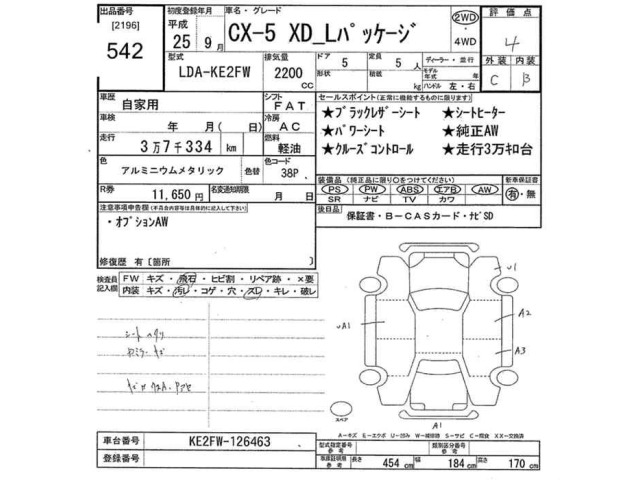 出品番号 初度登録年月 車名・グレード 評価点
[2196] 平成 2WD
542 25 9月 CX-5 XD_Lパッケージ 4WD 4
型式 排気量 ドア 5 定員 5人 ディーラー・並行 外装 内装
LDA-KE2FW 2200 CC 形状 積載 kg モデル年式 年 ハンドル 左・右 C B
車歴 シフト セールスポイント(正常に機能するものに限ります)
自家用 FAT ★ブラックレザーシート ★シートヒーター
車検 年 月(日) 冷房 AC ★パワーシート ★純正AW
走行 3万7千334 km 燃料 軽油 ★クルーズコントロール ★走行3万キロ台
色 アルミニウムメタリック 色替 色コード 38P
装備品(純正品に限り○をつけてください) 新車保証書
PS PW ABS エアB AW 有・無
SR ナビ TV カワ
R券 11,650円 名変通知期限 月 日
後日品 保証書・B-CASカード・ナビSD
注意事項申告欄
・オプションAW
修復歴 有[箇所 ]
検査員記入欄 FW キズ・飛石・ヒビ割・リペア跡・×要
内装 キズ・汚レ・コゲ・穴・スレ・キレ・破レ
U1
UA1
A2
A3
スペア
A1
A-キズ E-エクボ U-凹み W-補修跡 S-サビ C-腐食 XX-交換済
車台番号 KE2FW-126463
登録番号
型式指定番号 参考 類別区分番号 参考
車庫証明寸法 参考 長さ 454 cm 幅 184 cm 高さ 170 cm